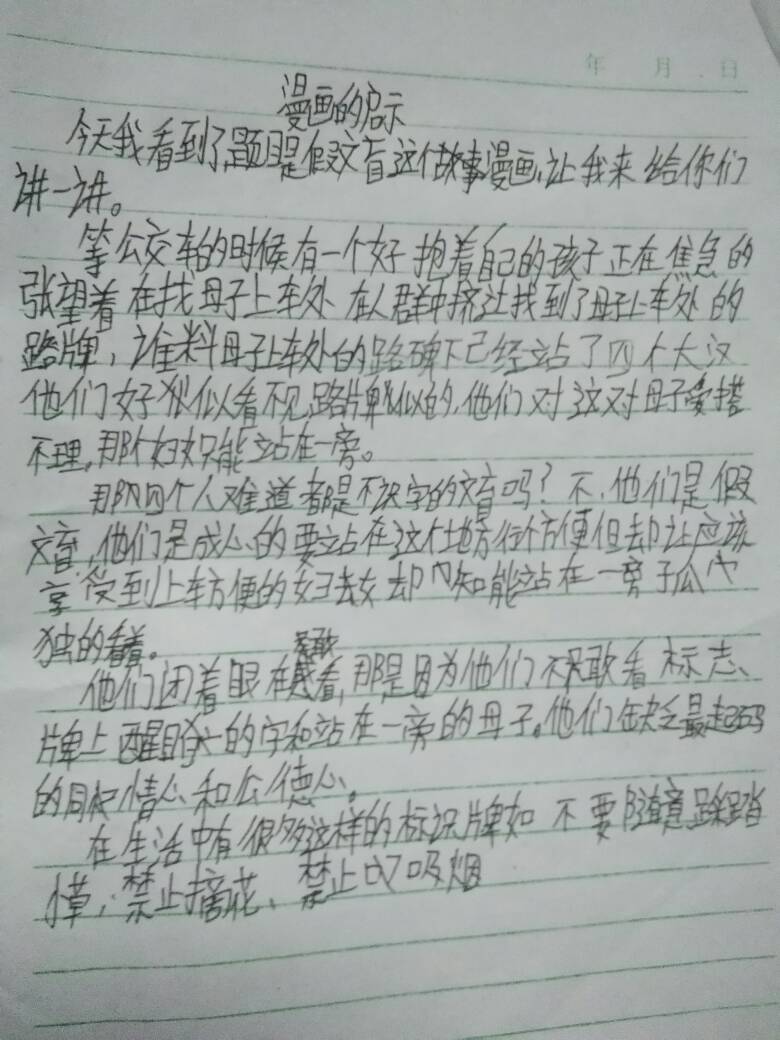 年 月 日
漫画的启示
今天我看到了,题目是假文盲这个故事漫画,让我来给你们
讲一讲。
等公交车的时候有一个好抱着自己的孩子正在焦急的
张望着在找母子上车处.在人群中挤让找到了母子上车处的
路牌,谁料母子上车处的路碑下已经站了四个大汉
他们好似似看不见路牌似的,他们对这对母子爱搭
不理,那个妇女只能站在一旁。
那四个人难道都是不识字的文盲吗?不,他们是假
文盲,他们是成心的要站在这个地方行个方便但却让应该
享受到上车方便的妇女却只能站在一旁孤
独的看着。
他们闭着眼在看,那是因为他们不敢看标志、
牌上醒目的字和站在一旁的母子。他们缺乏最起码
的同情心和公德心。
在生活中有很多这样的标识牌如 不要随意踩踏
小草,禁止摘花、禁止吸烟